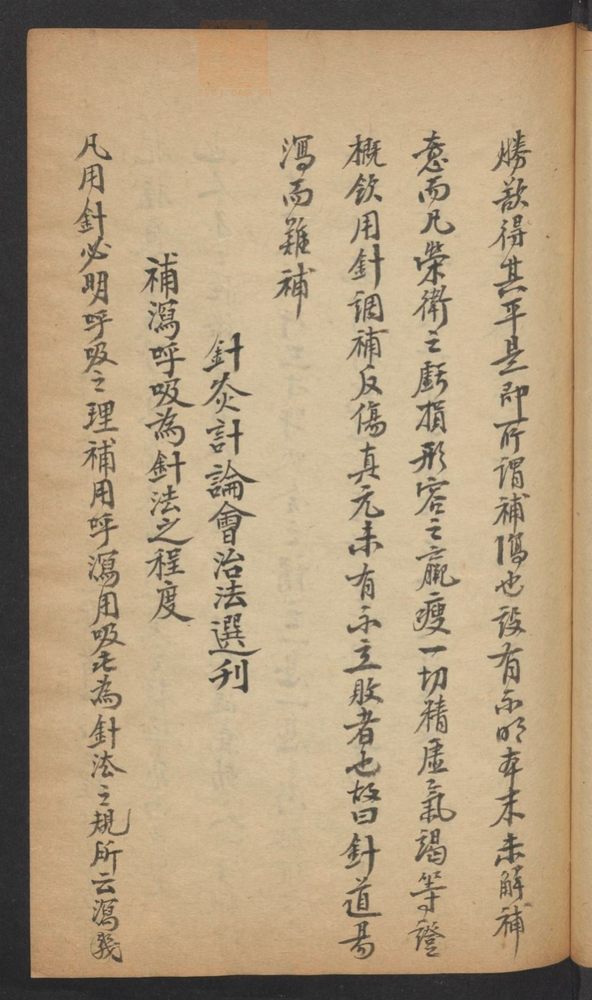 勝歉得其平是即所謂補瀉也設有不明本末未解補
意而凡榮衛之虧損形容之羸瘦一切精虛氣竭等證
概欲用針調補反傷真元未有不立敗者也故曰針道易
瀉而難補
針灸討論會治法選刊
補瀉呼吸為針法之程度
凡用針必明呼吸之理補用呼瀉用吸此為針法之規所云瀉幾